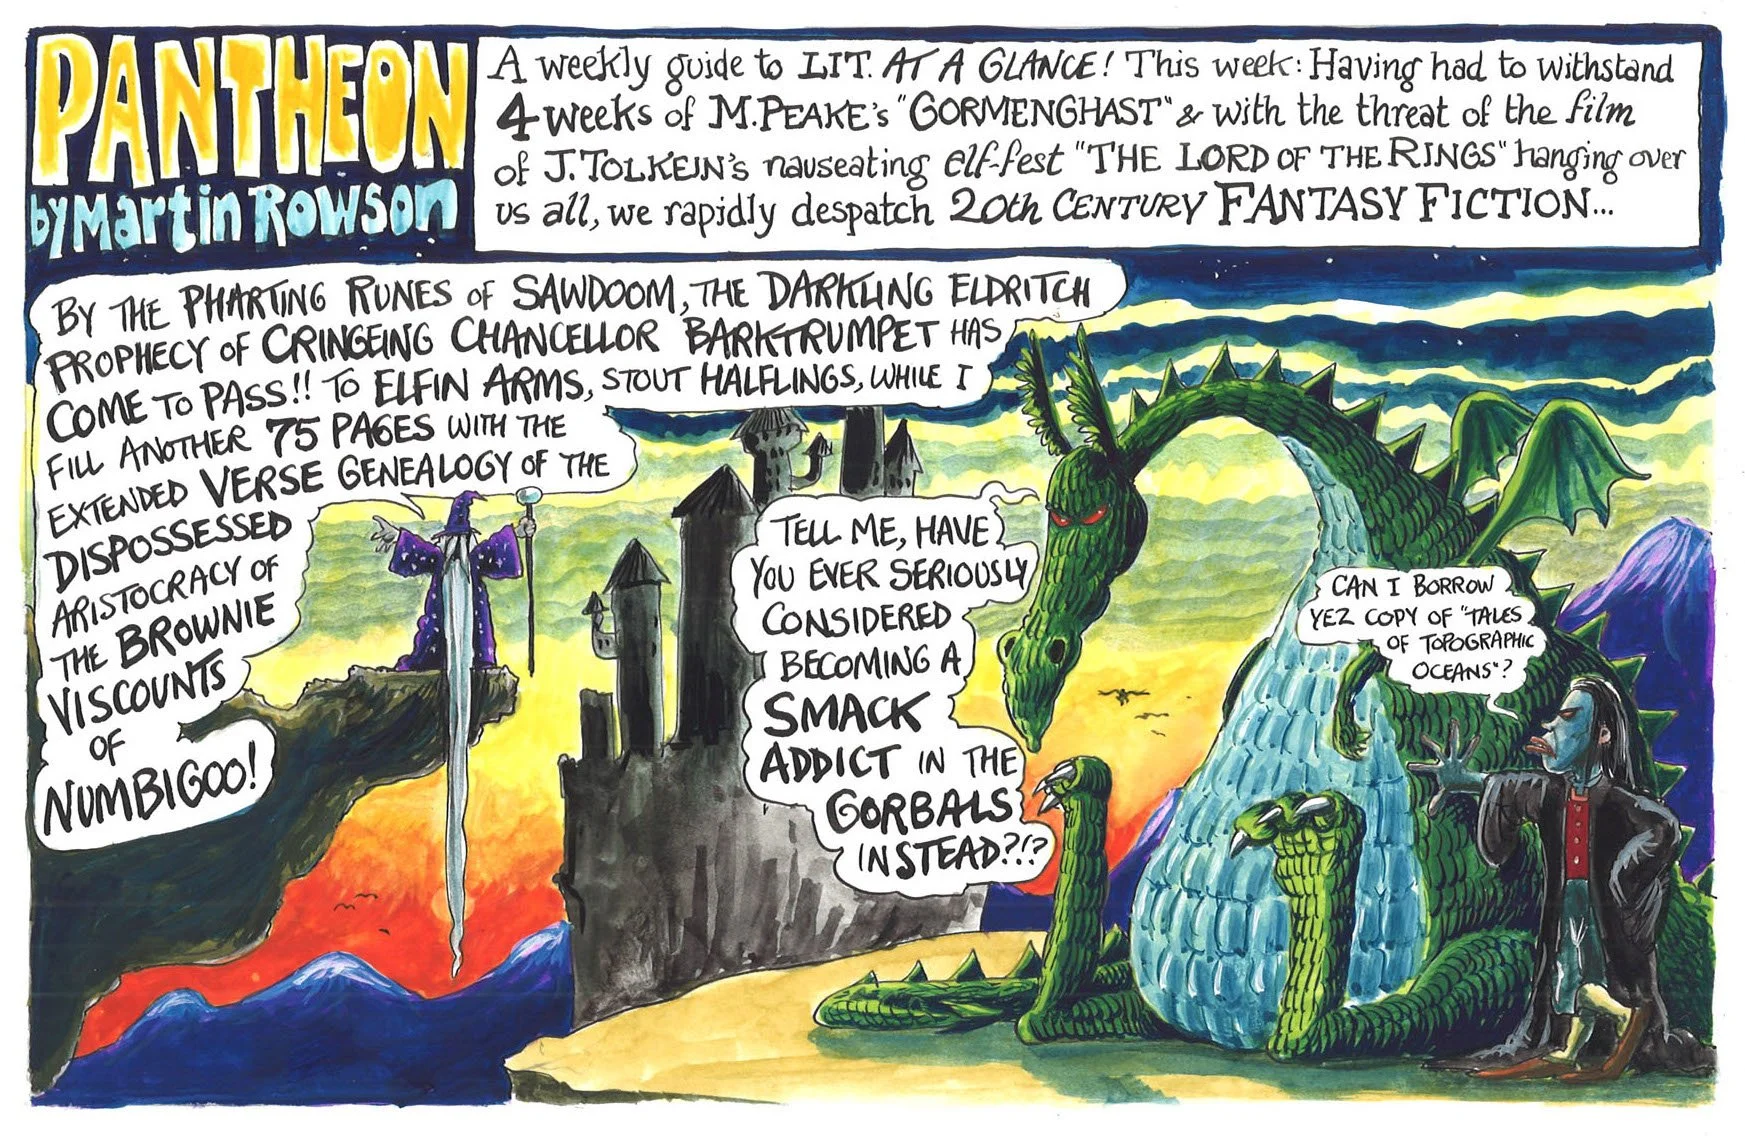 PANTHEON
by Martin Rowson
A weekly guide to LIT. AT A GLANCE! This week: Having had to withstand
4 weeks of M. PEAKE's "GORMENGHAST" & with the threat of the film
of J. TOLKEIN's nauseating elf-fest "THE LORD OF THE RINGS" hanging over
us all, we rapidly despatch 20th CENTURY FANTASY FICTION...
BY THE PHARTING RUNES OF SAWDOOM, THE DARKLING ELDRITCH
PROPHECY OF CRINGEING CHANCELLOR BARKTRUMPET HAS
COME TO PASS!! TO ELFIN ARMS, STOUT HALFLINGS, WHILE I
FILL ANOTHER 75 PAGES WITH THE
EXTENDED VERSE GENEALOGY OF THE
DISPOSSESSED
ARISTOCRACY OF
THE BROWNIE
VISCOUNTS
OF
NUMBIGOO!
TELL ME, HAVE
YOU EVER SERIOUSLY
CONSIDERED
BECOMING A
SMACK
ADDICT IN THE
GORBALS
INSTEAD?!?
CAN I BORROW
YEZ COPY OF "TALES
OF TOPOGRAPHIC
OCEANS"?